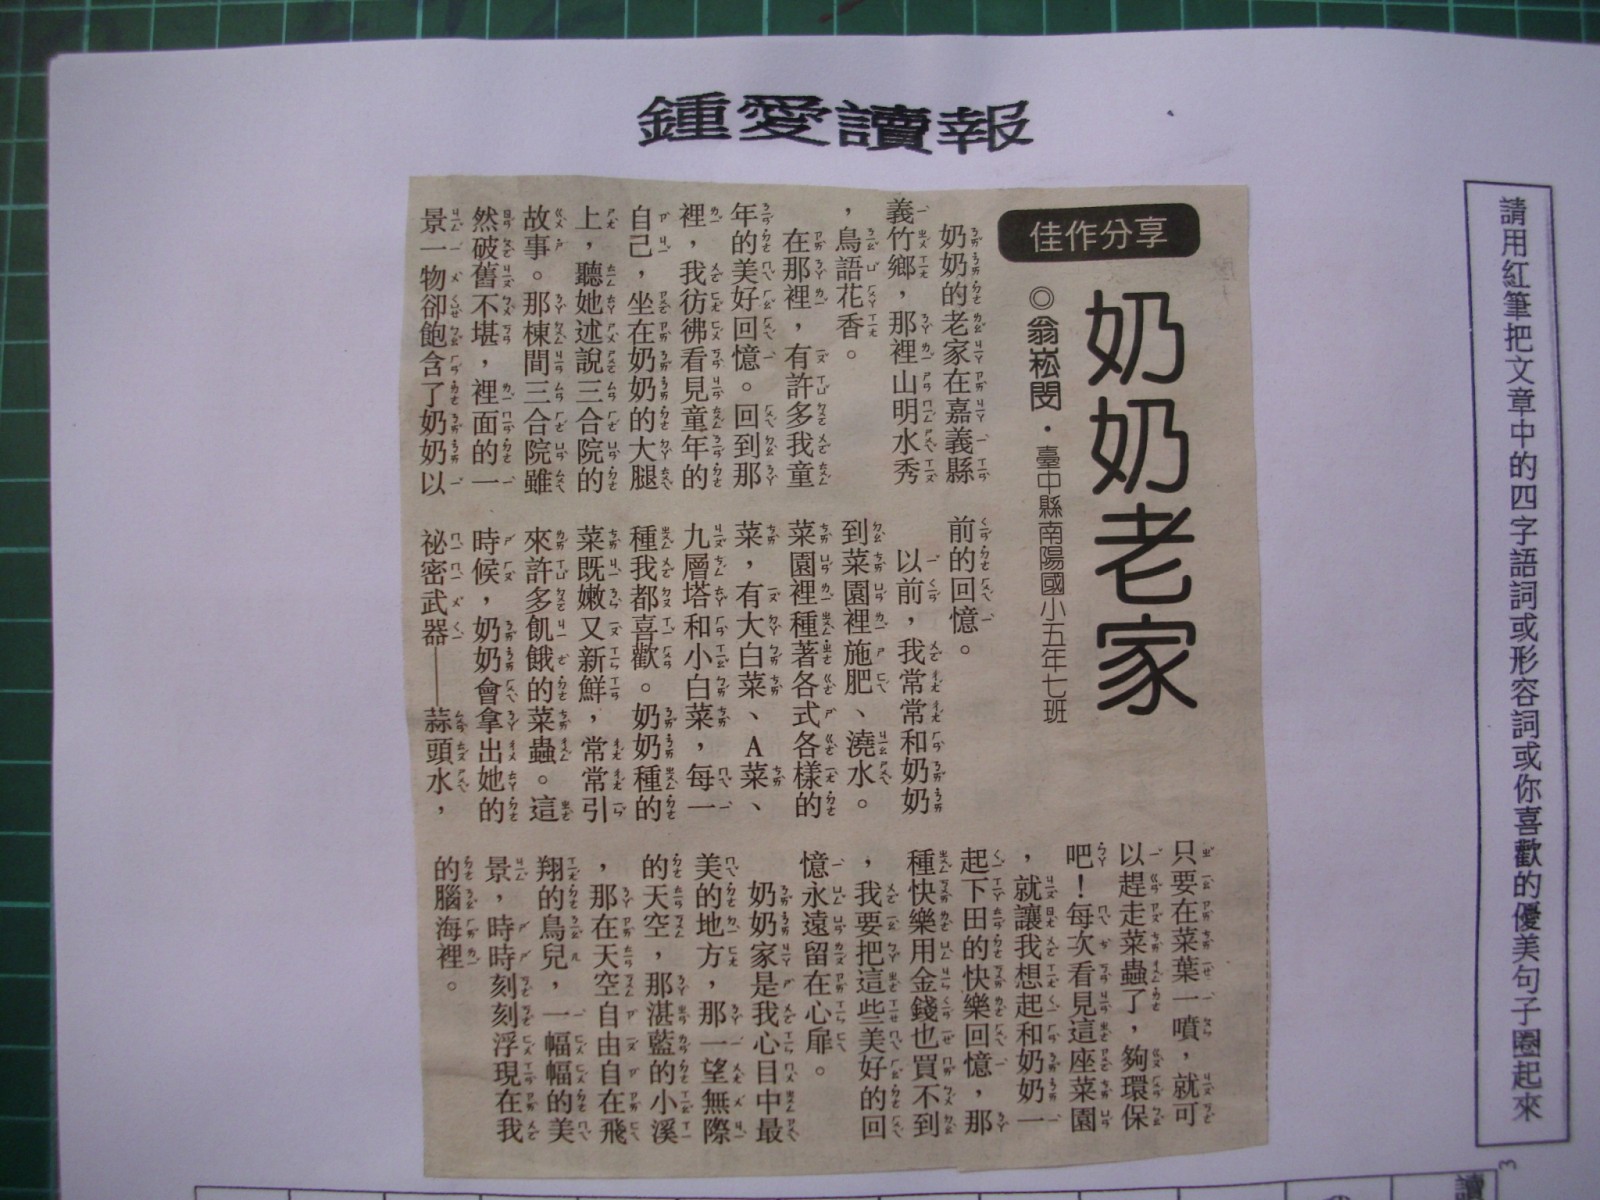 鍾愛讀報
請用紅筆把文章中的四字語詞或形容詞或你喜歡的優美句子圈起來
佳作分享
奶奶老家
◎翁崧閔・臺中縣南陽國小五年七班
奶奶的老家在嘉義縣
義竹鄉，那裡山明水秀
，鳥語花香。
在那裡，有許多我童
年的美好回憶。回到那
裡，我彷彿看見童年的
自己，坐在奶奶的大腿
上，聽她述說三合院的
故事。那棟間三合院雖
然破舊不堪，裡面的一
景一物卻飽含了奶奶以
前的回憶。
以前，我常常和奶奶
到菜園裡施肥、澆水。
菜園裡種著各式各樣的
菜，有大白菜、A菜、
九層塔和小白菜，每一
種我都喜歡。奶奶種的
菜既嫩又新鮮，常常引
來許多飢餓的菜蟲。這
時候，奶奶會拿出她的
祕密武器——蒜頭水，
只要在菜葉一噴，就可
以趕走菜蟲了，夠環保
吧！每次看見這座菜園
，就讓我想起和奶奶一
起下田的快樂回憶，那
種快樂用金錢也買不到
，我要把這些美好的回
憶永遠留在心扉。
奶奶家是我心目中最
美的地方，那一望無際
的天空，那湛藍的小溪
，那在天空自由自在飛
翔的鳥兒，一幅幅的美
景，時時刻刻浮現在我
的腦海裡。
3
讀